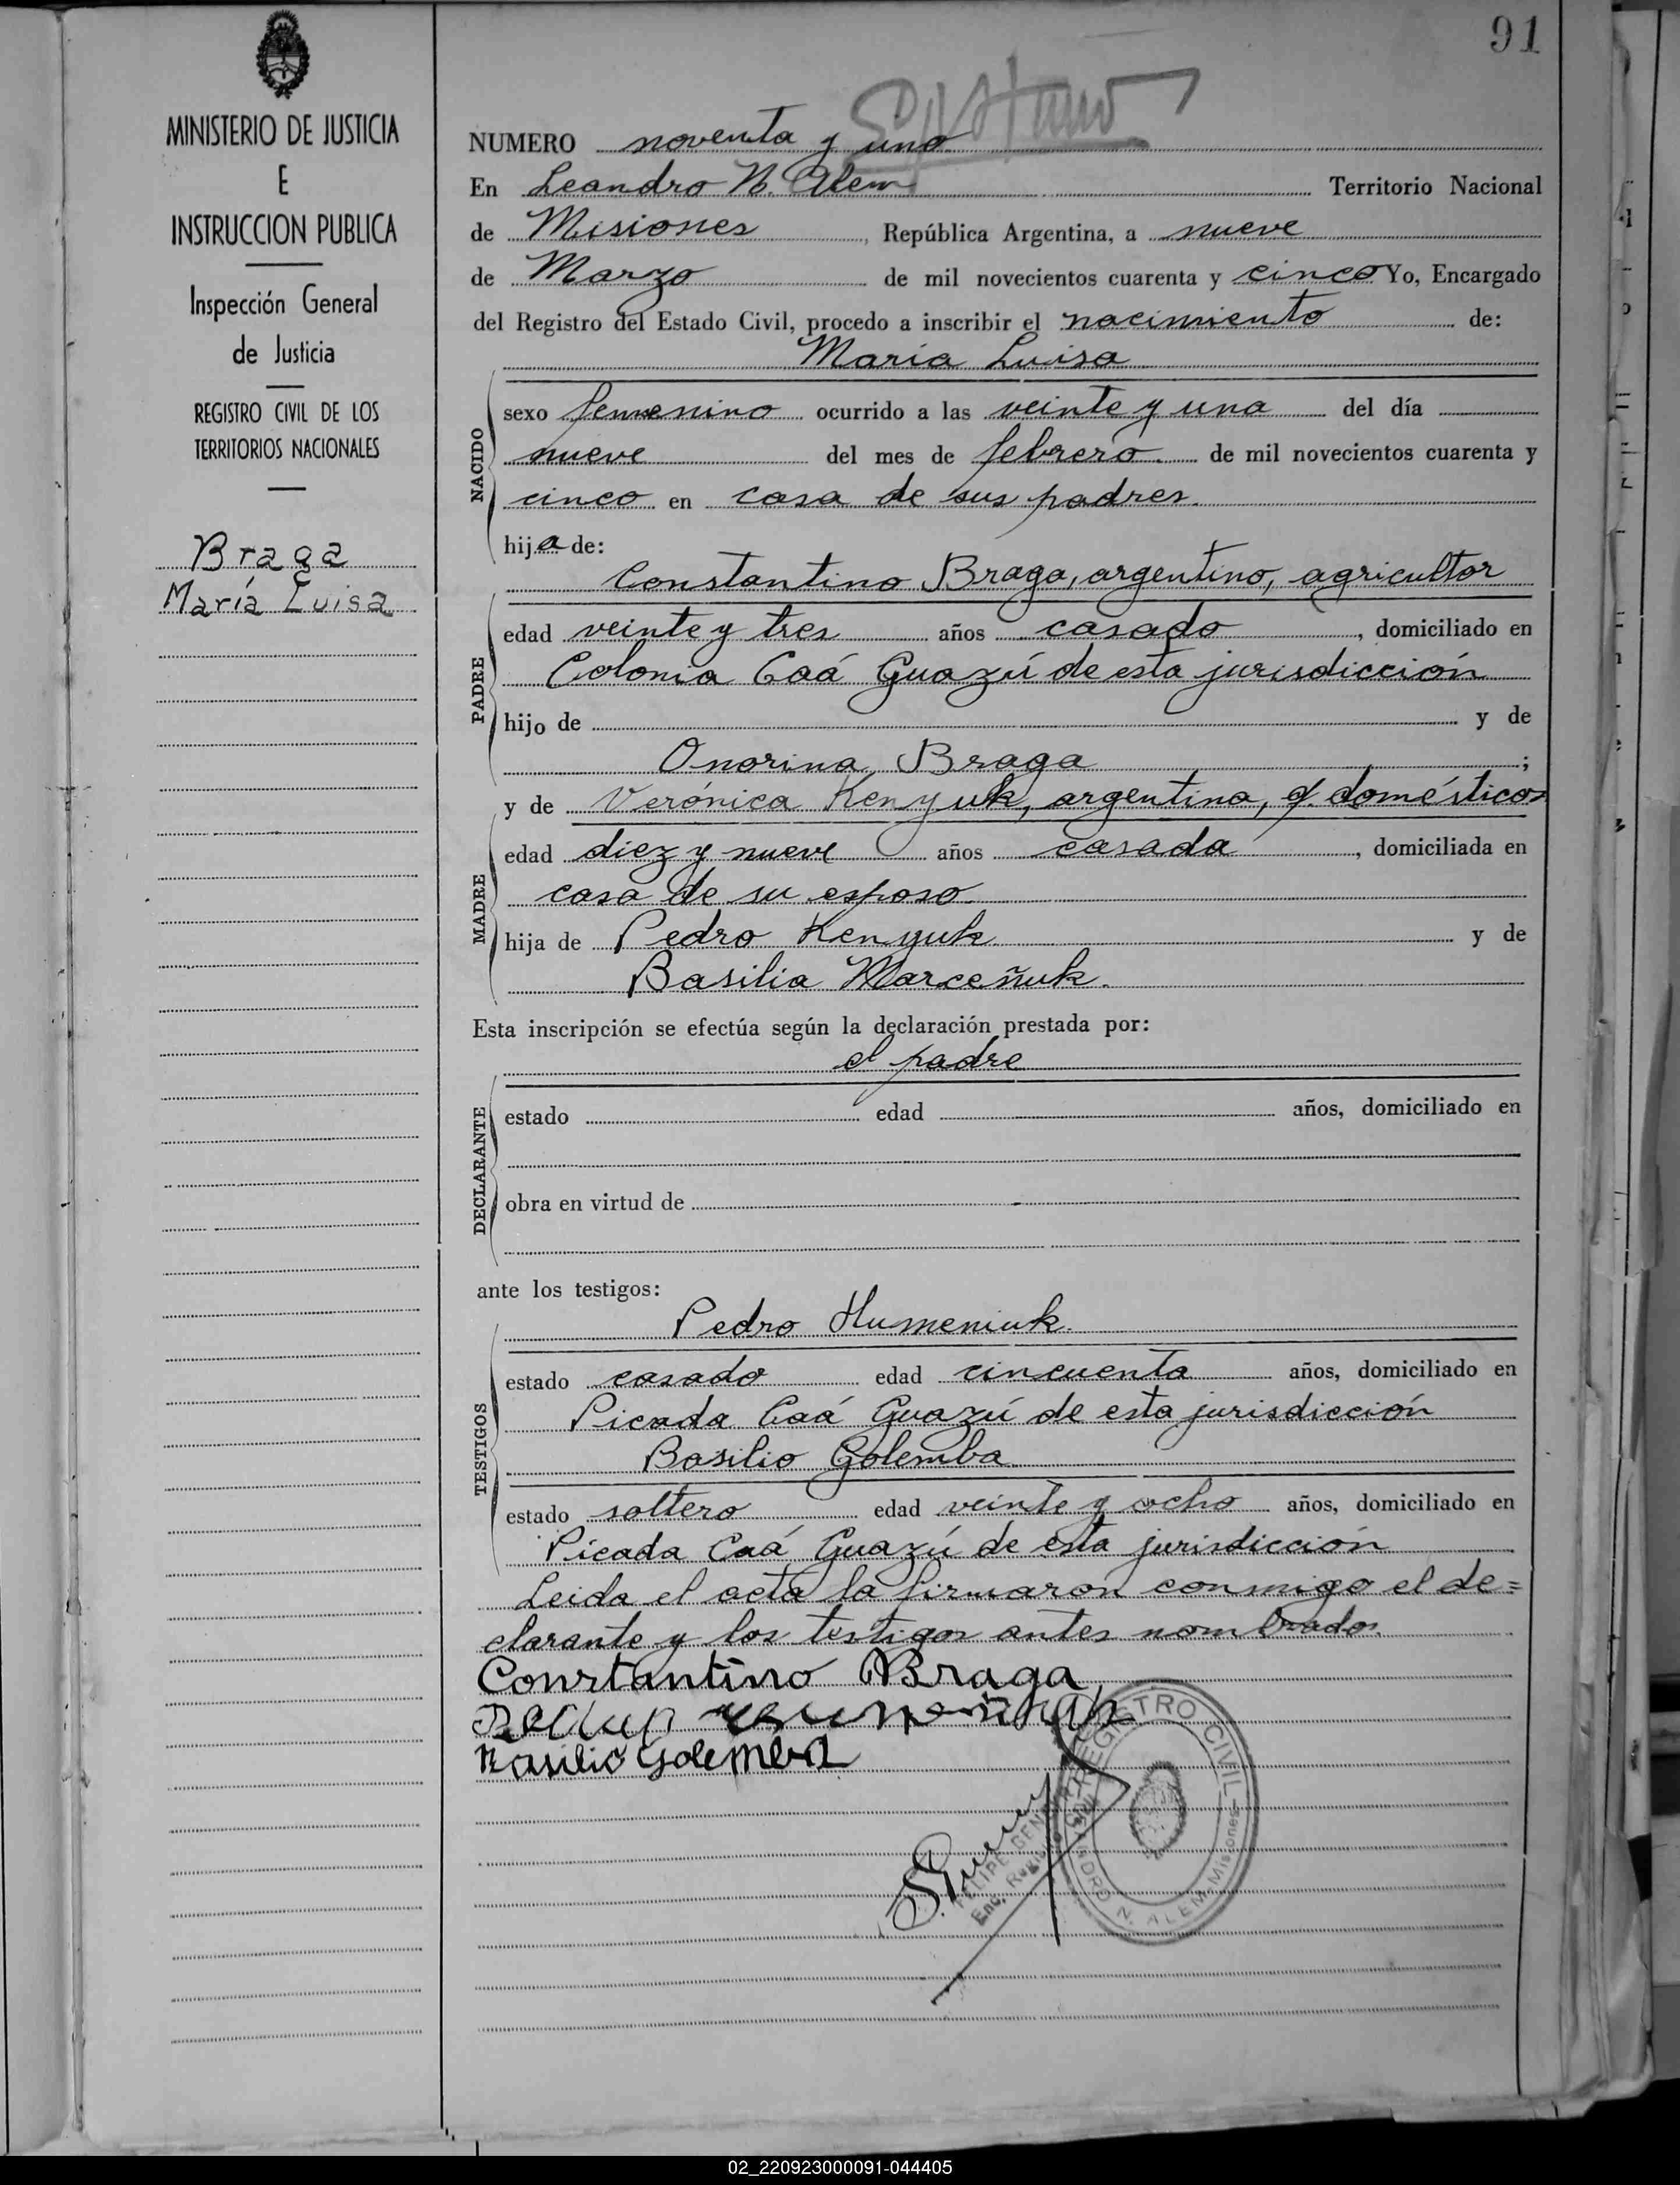 91
MINISTERIO DE JUSTICIA
E
INSTRUCCION PUBLICA
Inspección General
de Justicia
REGISTRO CIVIL DE LOS
TERRITORIOS NACIONALES
Braga
María Luisa
NUMERO noventa y uno
En Leandro N. Alem Territorio Nacional
de Misiones, República Argentina, a nueve
de Marzo de mil novecientos cuarenta y cinco Yo, Encargado
del Registro del Estado Civil, procedo a inscribir el nacimiento de:
María Luisa
NACIDO
sexo femenino ocurrido a las veinte y una del día
nueve del mes de febrero de mil novecientos cuarenta y
cinco en casa de sus padres.
hija de:
Constantino Braga, argentino, agricultor
PADRE
edad veinte y tres años casado, domiciliado en
Colonia Caá Guazú de esta jurisdicción
hijo de y de
Onorina Braga;
y de Verónica Kenyuk, argentina, q. domésticos
MADRE
edad diez y nueve años casada, domiciliada en
casa de su esposo.
hija de Pedro Kenyuk y de
Basilia Marceñuk.
Esta inscripción se efectúa según la declaración prestada por:
el padre
DECLARANTE
estado edad años, domiciliado en
obra en virtud de
ante los testigos:
Pedro Humeniuk.
TESTIGOS
estado casado edad cincuenta años, domiciliado en
Picada Caá Guazú de esta jurisdicción
Basilio Golemba
estado soltero edad veinte y ocho años, domiciliado en
Picada Caá Guazú de esta jurisdicción
Leida el acta la firmaron conmigo el de=
clarante y los testigos antes nombrados.
Constantino Braga
Basilio Golemba
REGISTRO CIVIL
LEANDRO N. ALEM Misiones
02_220923000091-044405